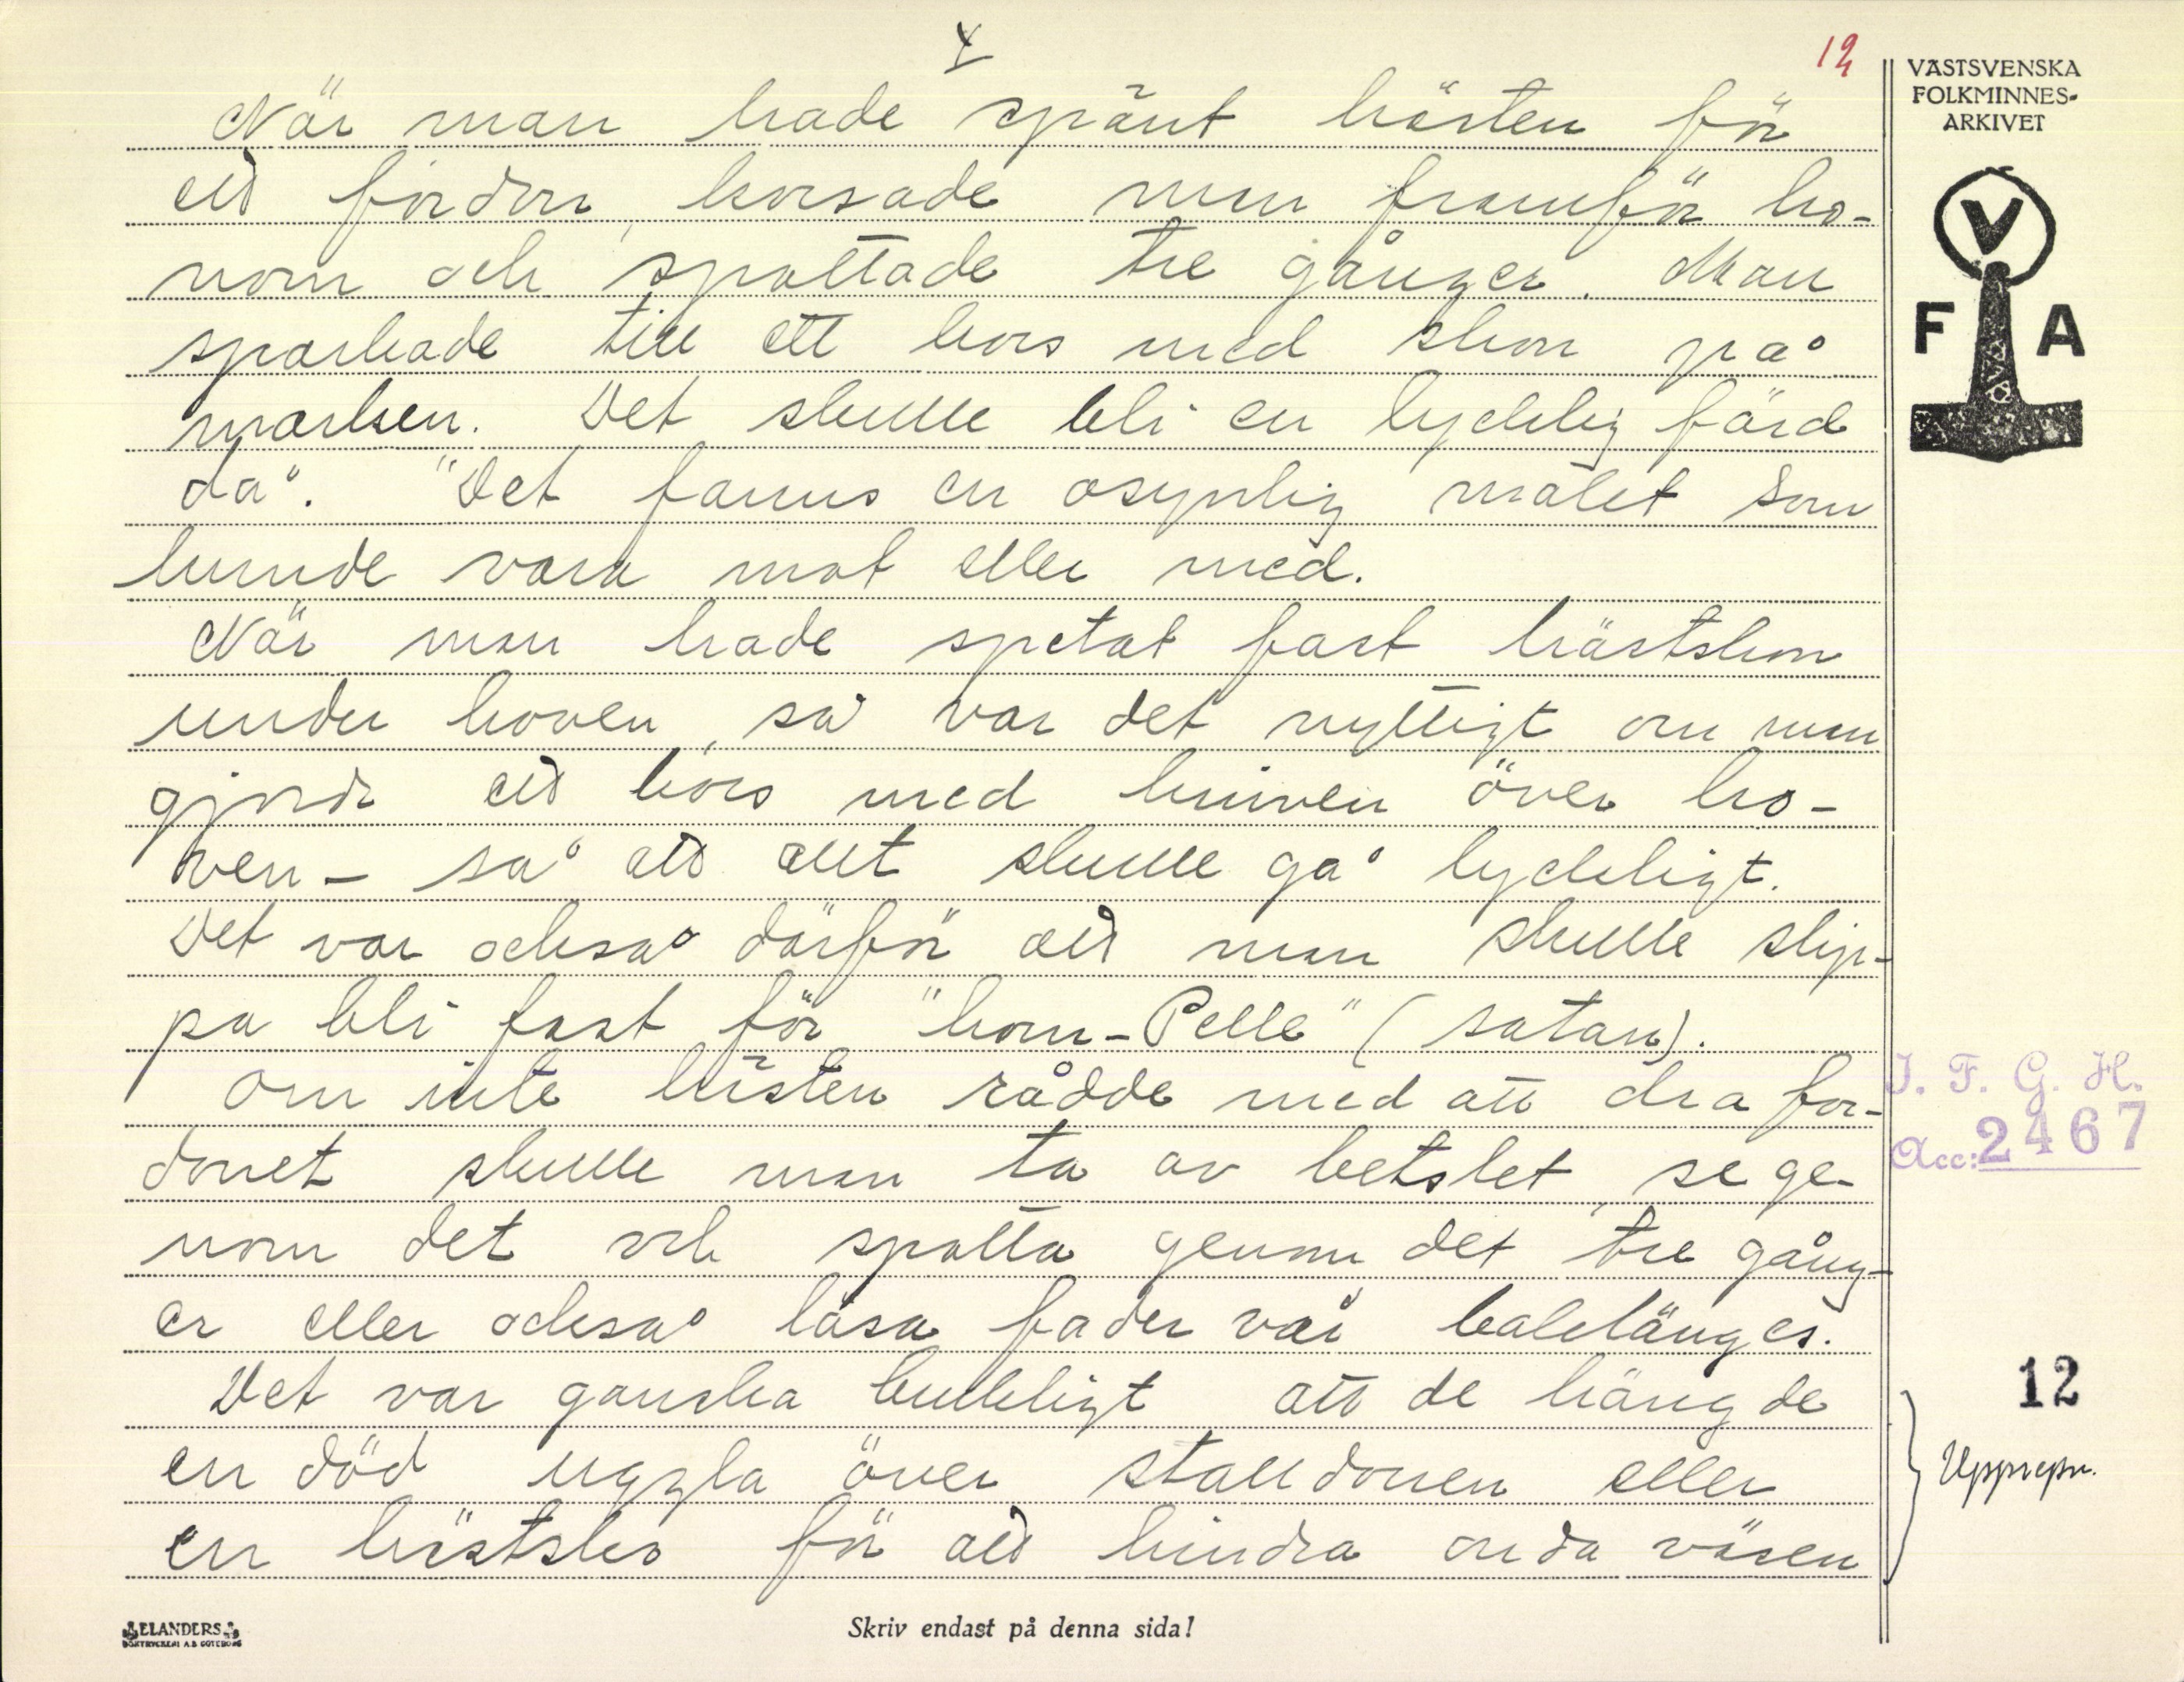 12
När man hade spänt hästen för
ett fordon, korsade man framför ho-
nom och spottade tre gånger. Man
sparkade till ett kors med skon på
marken. Det skulle bli en lycklig färd
då. "Det fanns en osynlig målet som
kunde vara mot eller med.
När man hade spetat fast hästskon
under hoven, så var det nyttigt om man
gjorde ett kors med kniven över ho-
ven – så att allt skulle gå lyckligt.
Det var också därför att man skulle slip-
pa bli fast för "horn-Pelle" (satan).
Om inte hästen rådde med att dra for-
donet skulle man ta av betslet, se ge-
nom det och spotta genom det tre gång-
er eller också läsa fader vår baklänges.
Det var ganska brukligt att de hängde
en död uggla över stalldörren eller
en hästsko för att hindra onda väsen
VÄSTSVENSKA
FOLKMINNES-
ARKIVET
V
F A
I. F. G. H.
Acc: 2467
12
Upprepn.
ELANDERS
BOKTRYCKERI A.B. GÖTEBORG
Skriv endast på denna sida!